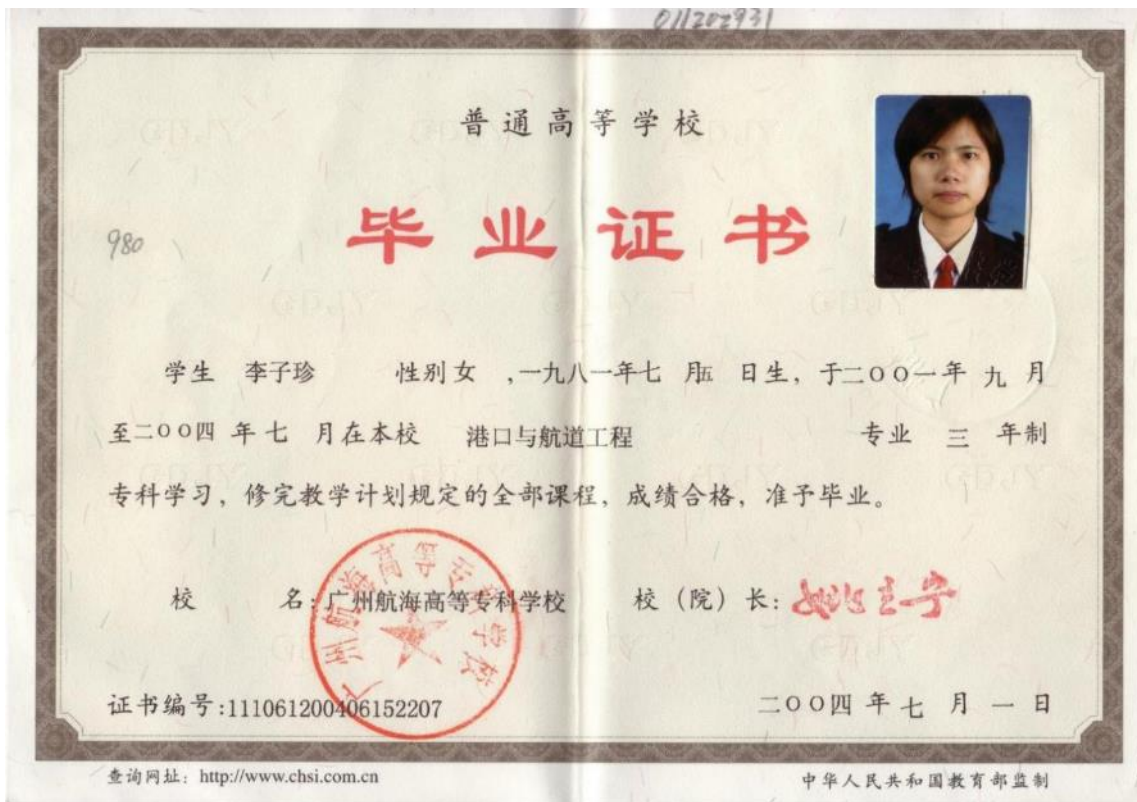 011202931
普通高等学校
毕业证书
980
学生 李子珍 性别 女 ,一九八一年七 月五 日生，于二〇〇一年 九 月
至二〇〇四 年 七 月在本校 港口与航道工程 专业 三 年制
专科学习，修完教学计划规定的全部课程，成绩合格，准予毕业。
校 名：广州航海高等专科学校 校（院）长：
广州航海高等专科学校
证书编号:111061200406152207 二〇〇四 年 七 月 一 日
查询网址：http://www.chsi.com.cn 中华人民共和国教育部监制